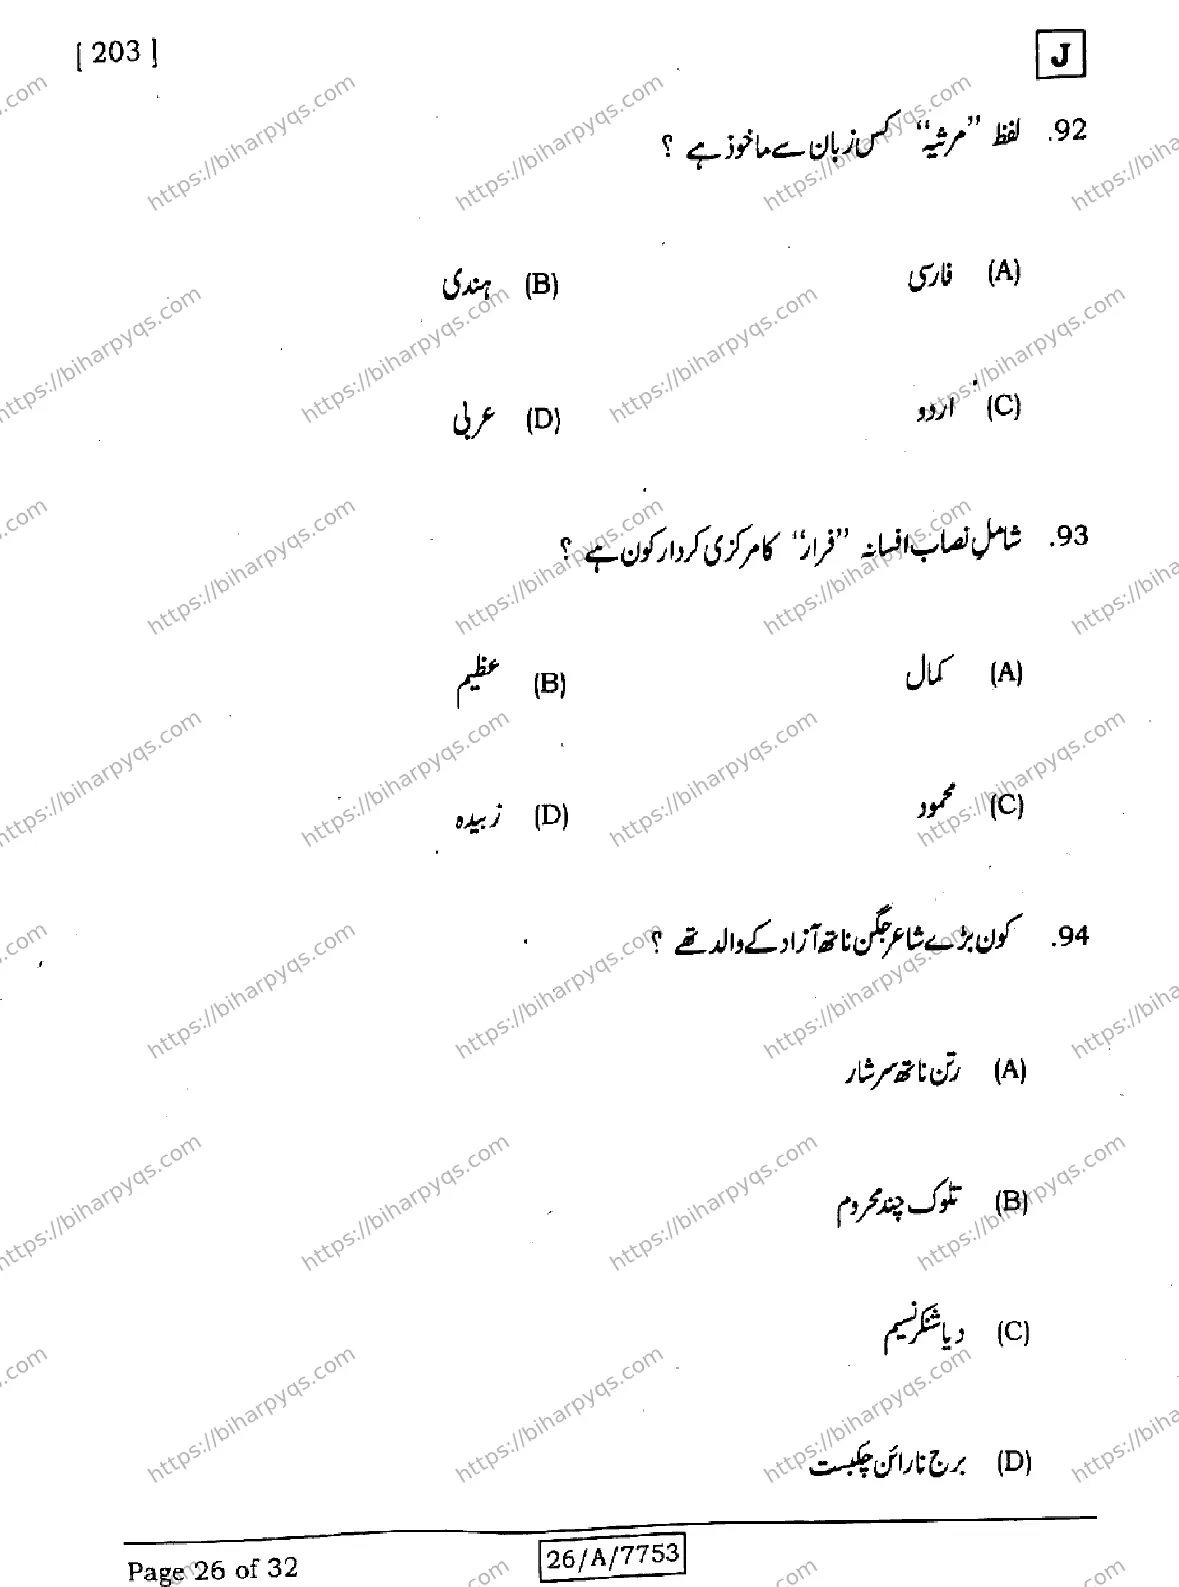 [ 203 ]
J
92. لفظ ”مرثیہ“ کس زبان سے ماخوذ ہے ؟
(A) فارسی
(B) ہندی
(C) اردو
(D) عربی
93. شامل نصاب افسانہ ”فرار“ کا مرکزی کردار کون ہے ؟
(A) کمال
(B) عظیم
(C) محمود
(D) زبیدہ
94. کون بڑے شاعر جگن ناتھ آزاد کے والد تھے ؟
(A) رتن ناتھ سرشار
(B) تلوک چند محروم
(C) دیا شنکر نسیم
(D) برج نارائن چکبست
Page 26 of 32
26/A/7753
https://biharpyqs.com